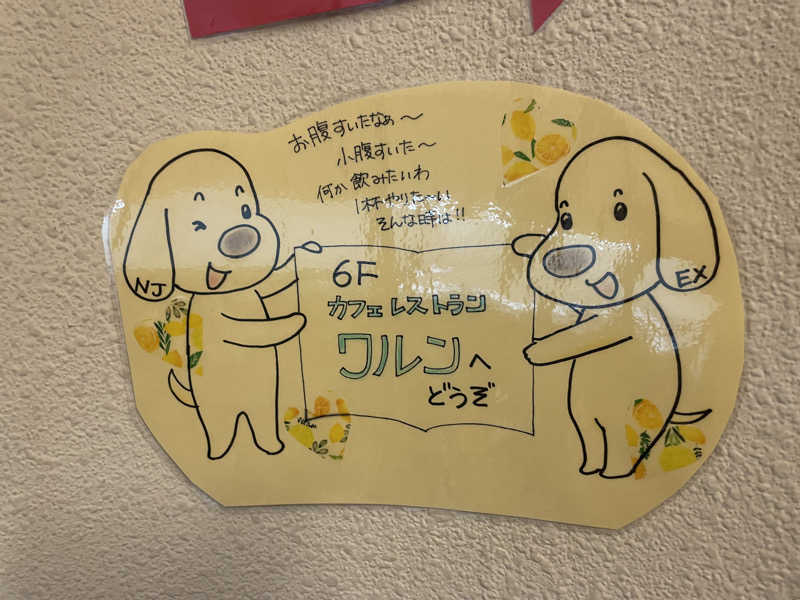 お腹すいたなぁ〜
小腹すいた〜
何か飲みたいわ
1杯やりた〜い
そんな時は!!
NJ
EX
6F
カフェレストラン
ワルンへ
どうぞ